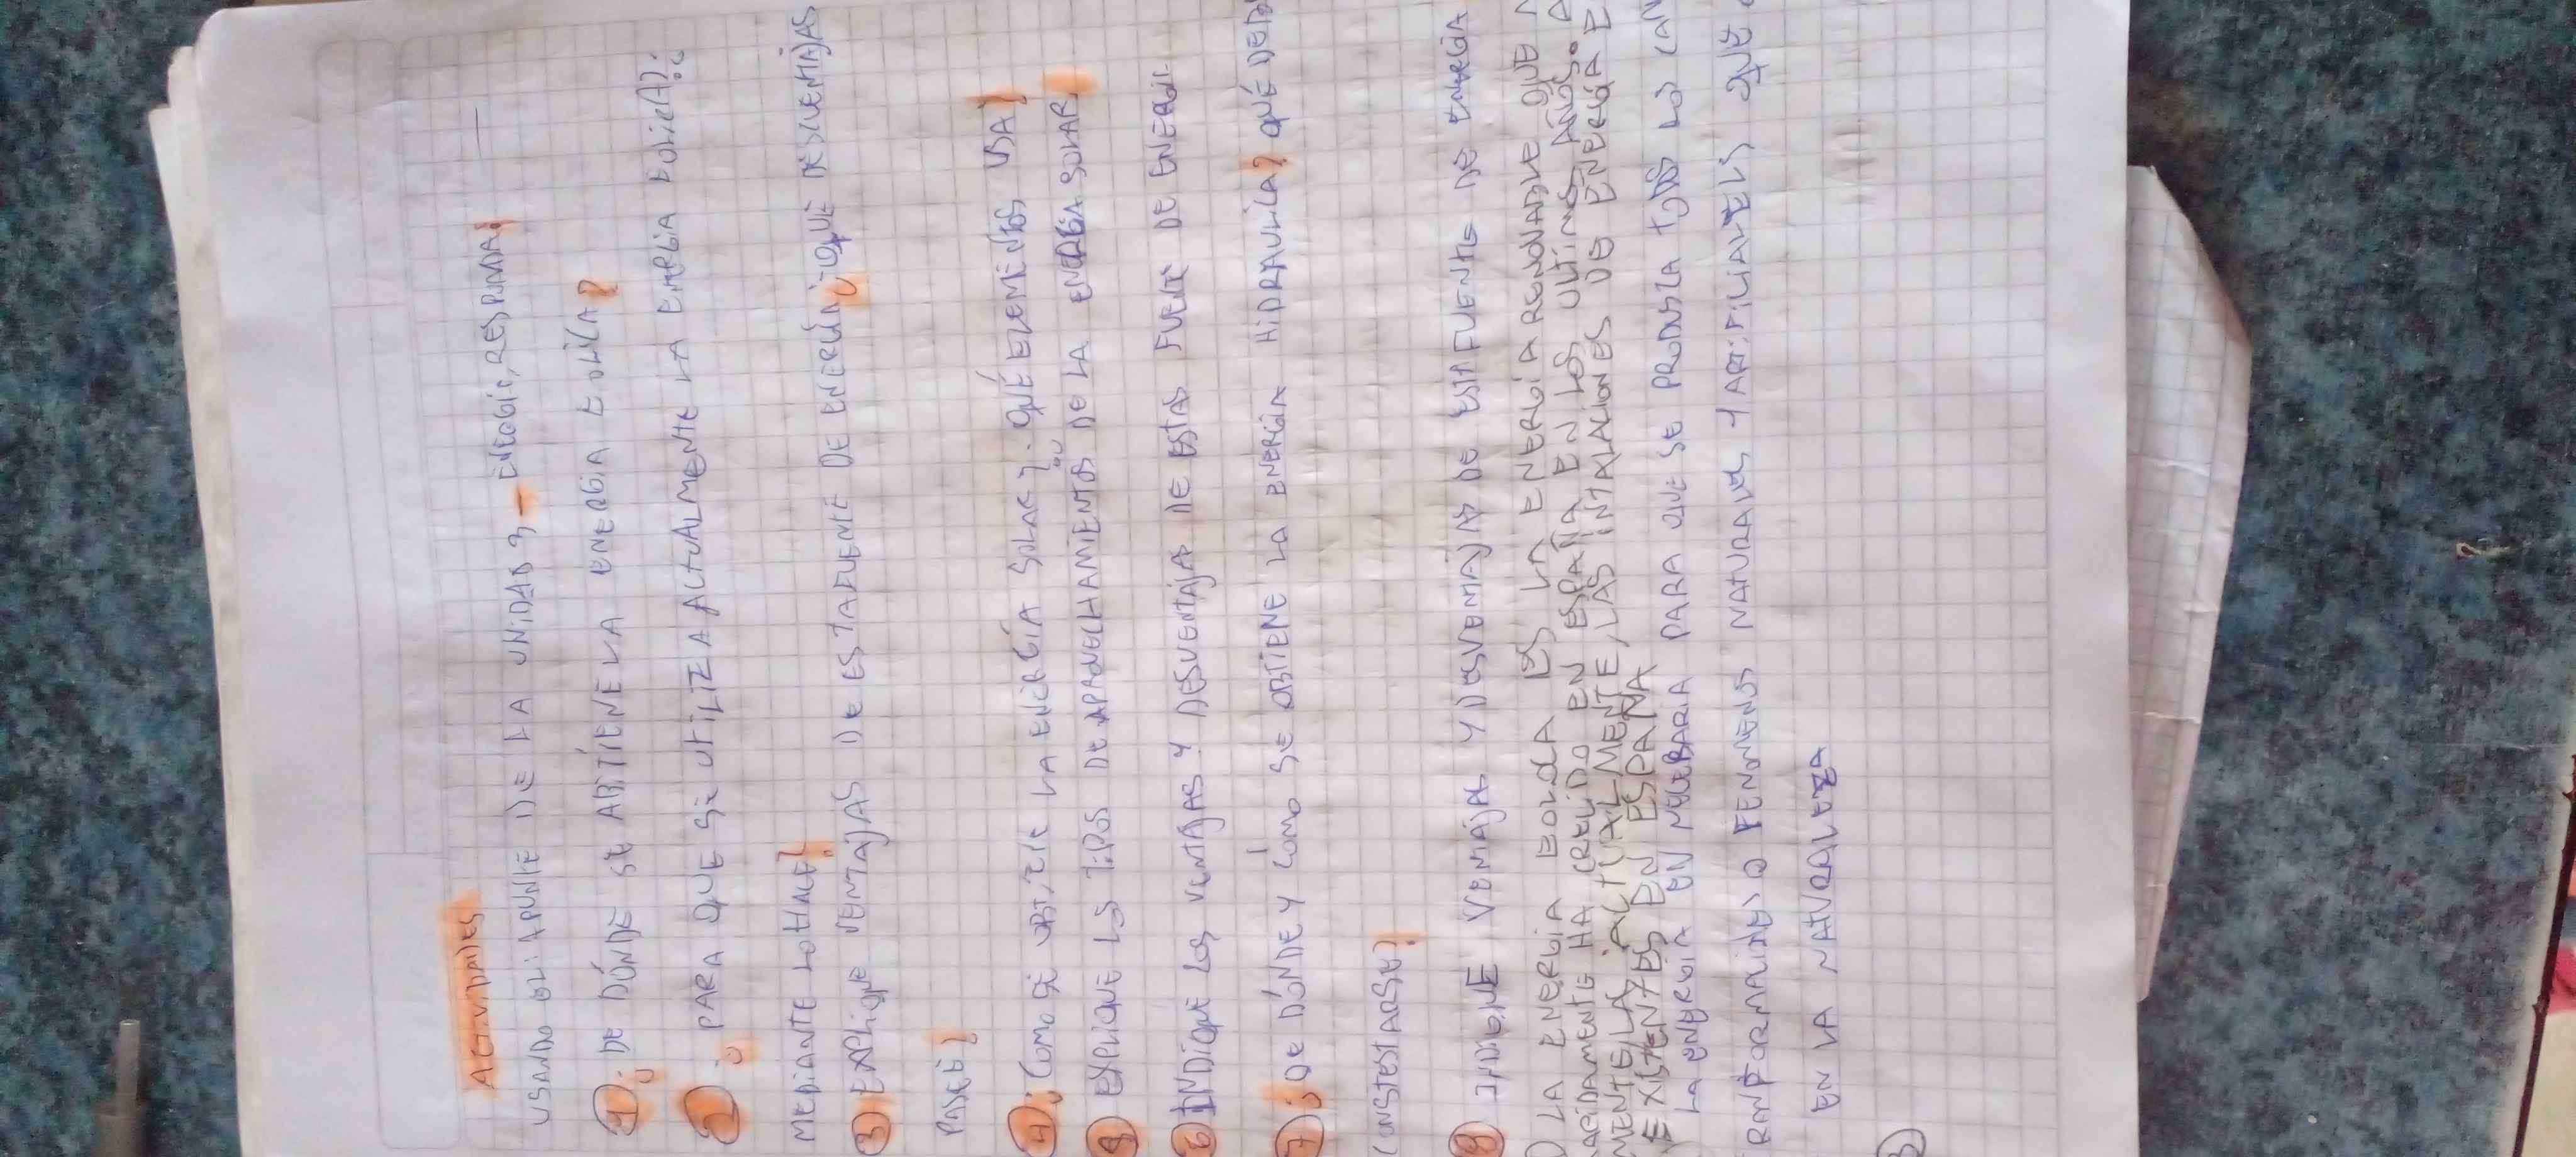 ACTIVIDADES
USANDO EL: APUNTE DE LA UNIDAD 3 – RESPONDA:
1) ¿DE DÓNDE SE ABTÍENE LA ENERGIA EOLICA?
2) ¿PARA QUE SE UTILIZA ACTUALMENTE LA ENERGIA EOLICA?¿
MEDIANTE LO HACE?
3) EXPLIQUE VENTAJAS DE ESTA FUENTE DE ENERGÍA ¿QUÉ DESVENTAJAS
POSEE?
4) ¿COMO SE OBTIENE LA ENERGÍA SOLAR? ¿QUÉ ELEMENTOS USA?
5) EXPLIQUE LOS TIPOS DE APROVECHAMIENTOS DE LA ENERGÍA SOLAR
6) INDÍQUE LOS VENTAJAS Y DESVENTAJAS DE ESTAS FUENTE DE ENERGÍA
7) ¿DE DÓNDE Y COMO SE OBTIENE LA ENERGÍA HIDRAULICA? QUÉ
INDIQUE VENTAJAS Y DESVENTAJAS DE ESTA FUENTE DE ENERGÍA
LA ENERGIA EOLICA ES LA ENERGÍA RENOVABLE QUE
HA CRECIDO EN ESPAÑA EN LOS ULTIMOS AÑOS.
LA ACTUALMENTE, LAS INTALACIONES DE ENERGÍA
EXISTENTES EN ESPANA
LA ENERGÍA EN PARA QUE SE PRODUSCA TODOS LOS
FENOMENOS NATURALES Y QUE
EN LA NATURALEZA